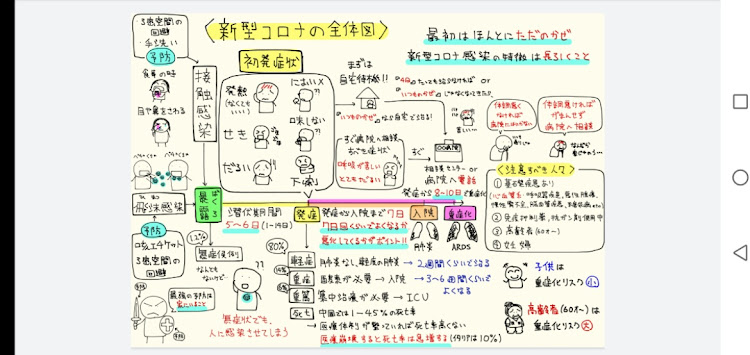 〈新型コロナの全体図〉
最初はほんとにただのかぜ
新型コロナ感染の特徴は長引くこと
3密空間の
回避
手洗い
予防
食事の時
目や鼻をさわる
接触感染
飛沫感染
予防
咳エチケット
3密空間の
回避
ばくろ
暴露
初発症状
発熱
(なくても
いい)
せき
だるい
におい✕
味しない
下痢
まずは
自宅待機!!
4日たっても治らなければ or
いつものかぜ
じゃなくなってきた
いつものかぜなら自宅で治る!
すぐ病院へ相談
すべき症状
呼吸が苦しい
とてもだるい
すぐ
相談センター or
病院へ電話
発症から8〜10日で重症化
体調悪く
なければ
病院にはいかない
体調悪ければ
がまんせず
病院へ相談
〈注意すべき人々〉
① 基礎疾患あり
③ 高齢者(60才〜)
④ 妊婦
潜伏期間
5〜6日(1〜14日)
発症
発症から入院まで7日
7日目くらいでよくなるか
悪化してくるかがポイント!!
入院
肺炎
重症化
ARDS
1.2%
無症候性
なんとも
ないけど…
無症状でも、
人に感染させてしまう
最強の予防は
家にいること
80%
軽症 肺炎なし、軽度の肺炎 → 2週間くらいで治る
重症 酸素が必要 → 入院 → 3〜6週間くらいで
よくなる
重篤 集中治療が必要 → ICU
死亡 中国では1〜4.5%の死亡率
医療体制が整っていれば死亡率高くない
医療崩壊すると死亡率は急増する(イタリアは10%)
子供は
重症化リスク 小
高齢者(60才〜)は
重症化リスク 大